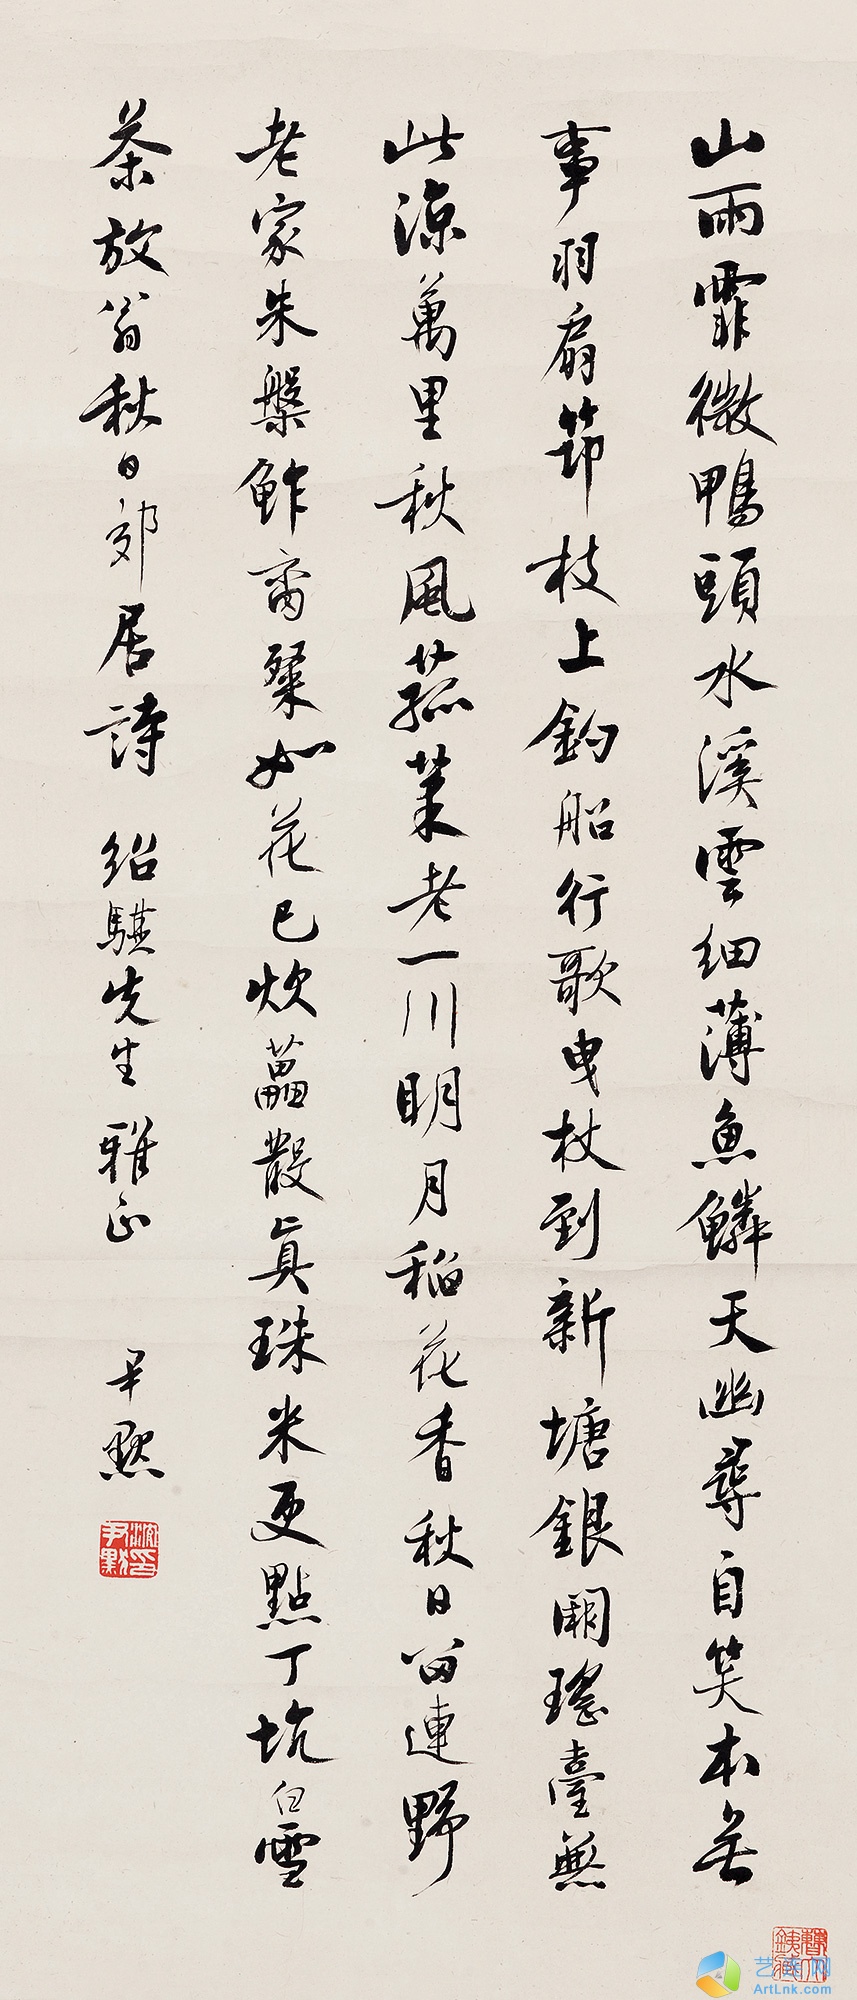 山雨霏微鴨頭水溪雲細薄魚鱗天幽尋自笑本無
事羽扇筇枝上釣船行歌曳杖到新塘銀闕瑤臺無
此涼萬里秋風菰菜老一川明月稻花香秋日留連野
老家朱盤鮓臠粲如花已炊藟散真珠米更點丁坑白雪
茶放翁秋日郊居詩 紹騏先生雅正 尹默
沈尹默印
ArtLnk.com